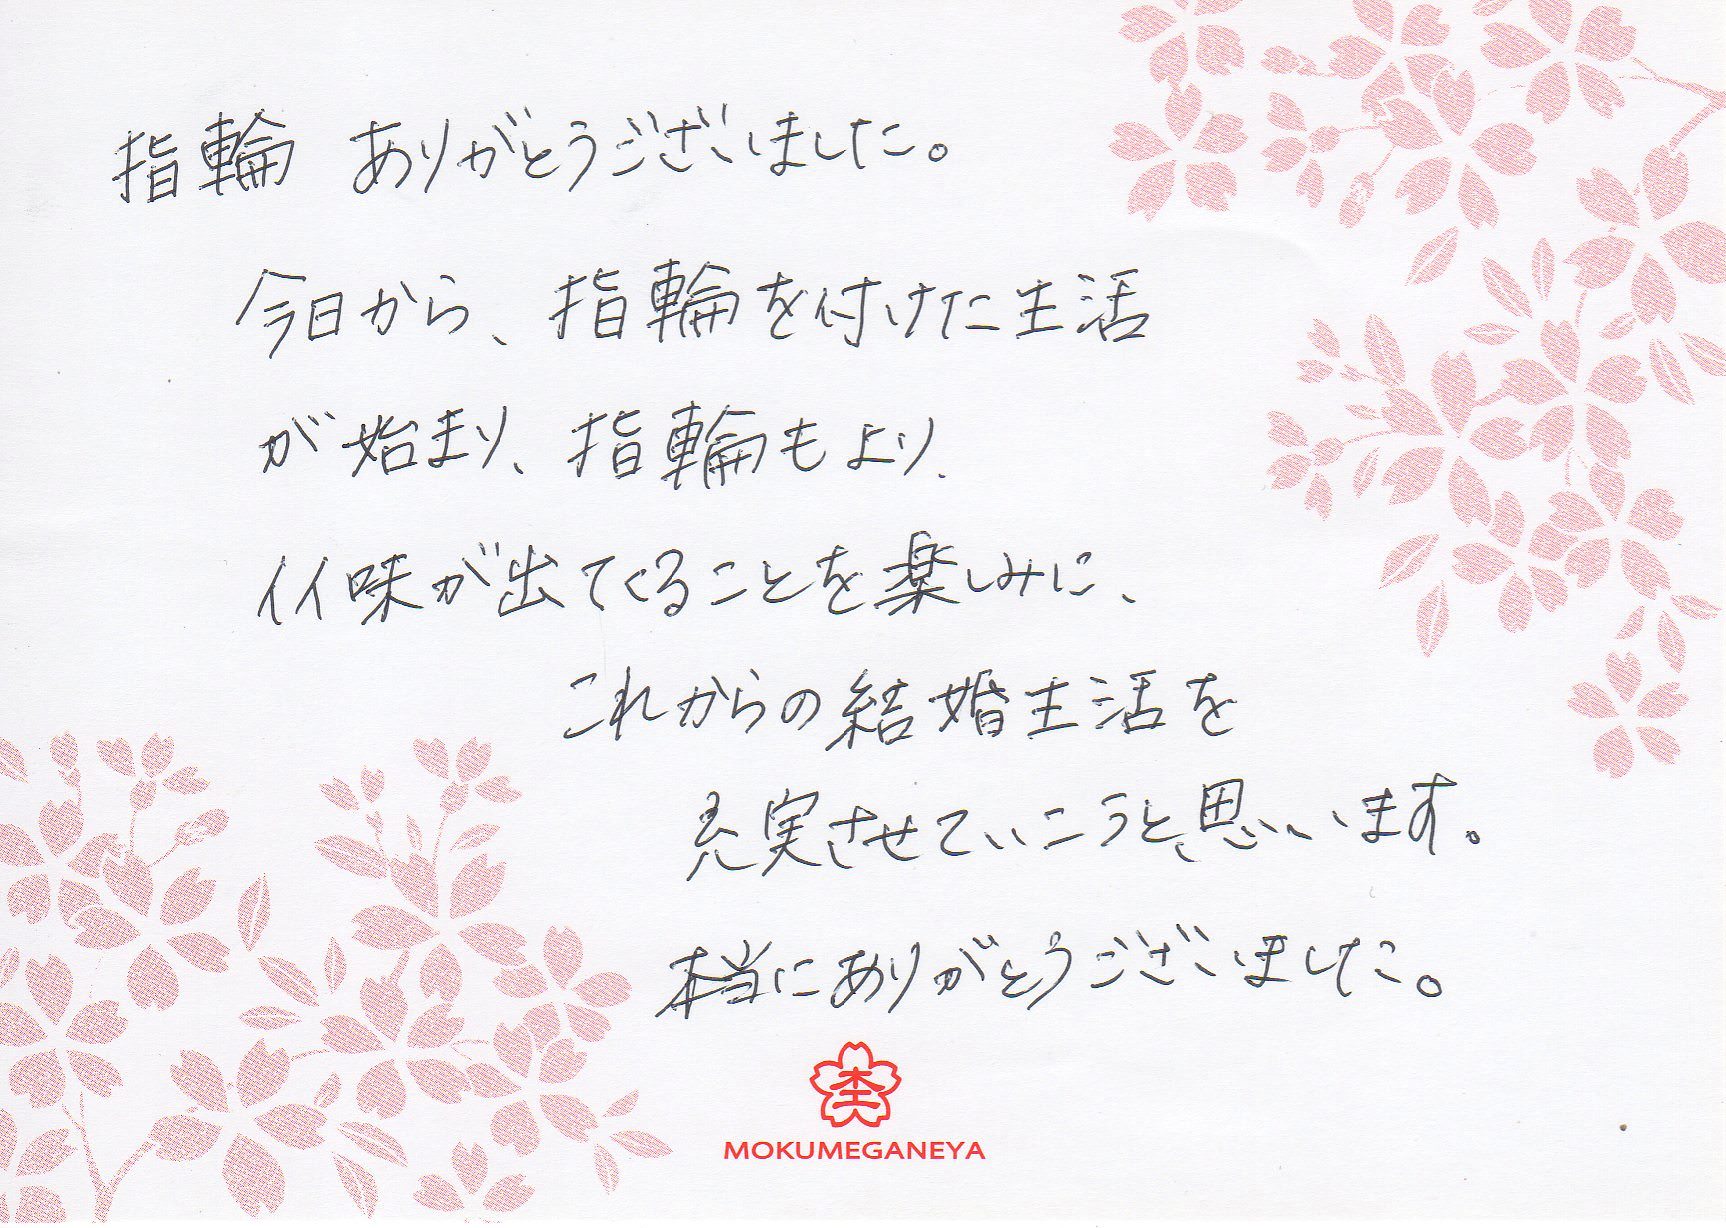 指輪 ありがとうございました。
今日から、指輪を付けた生活
が始まり、指輪もより、
イイ味が出てくることを楽しみに、
これからの結婚生活を
充実させていこうと、思います。
本当にありがとうございました。
杢
MOKUMEGANEYA